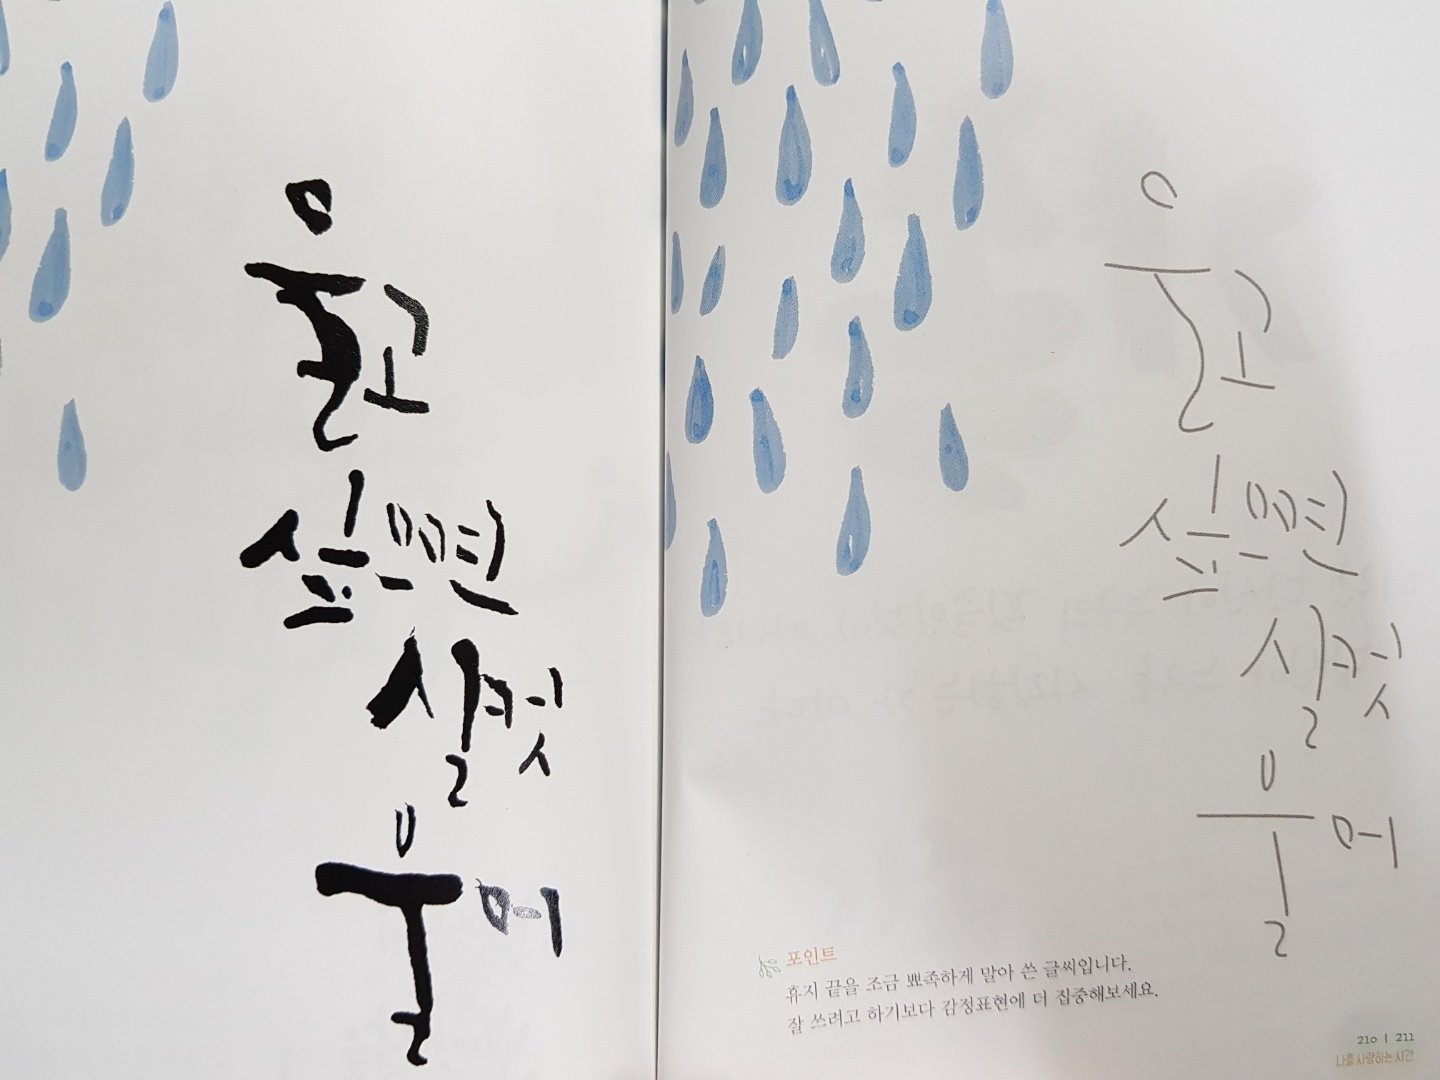 울고
싶으면
실컷
울어
울고
싶으면
실컷
울어
포인트
휴지 끝을 조금 뾰족하게 말아 쓴 글씨입니다.
잘 쓰려고 하기보다 감정표현에 더 집중해보세요.
210 | 211
나를 사랑하는 시간